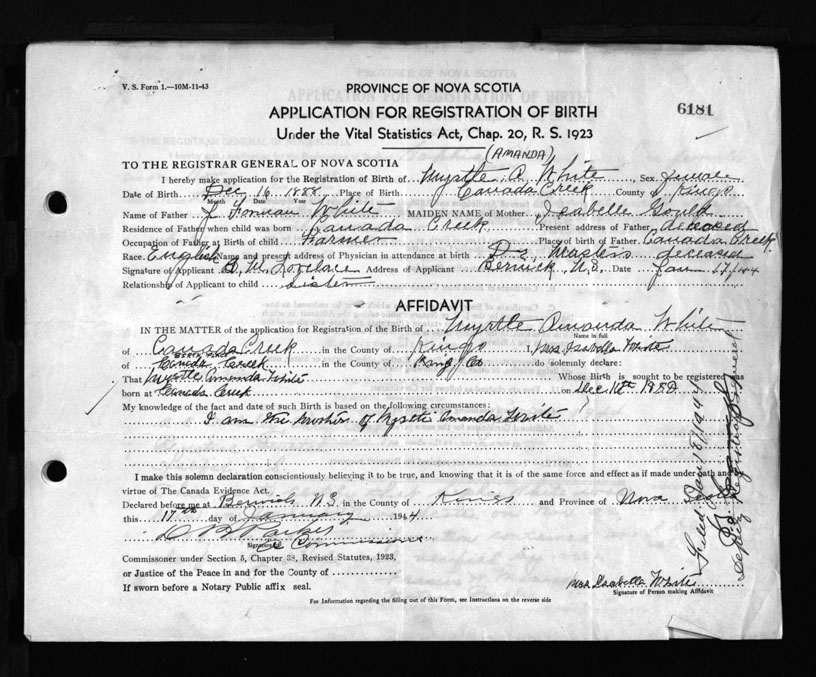 V. S. Form 1.—10M-11-43
PROVINCE OF NOVA SCOTIA
APPLICATION FOR REGISTRATION OF BIRTH
6181
Under the Vital Statistics Act, Chap. 20, R. S. 1923
(AMANDA)
TO THE REGISTRAR GENERAL OF NOVA SCOTIA
I hereby make application for the Registration of Birth of Myrtle A. White Sex female
Date of Birth Dec 16 1888 Place of Birth Canada Creek County Kings
Month Date Year
Name of Father J. White MAIDEN NAME of Mother Isabelle Gould
Residence of Father when child was born Canada Creek Present address of Father deceased
Occupation of Father at Birth of child Farmer Place of birth of Father Canada Creek
Race. English Name and present address of Physician in attendance at birth Dr. Masters deceased
Signature of Applicant Lovelace Address of Applicant Berwick, N.S. Date Jan 17/44
Relationship of Applicant to child sister
AFFIDAVIT
IN THE MATTER of the application for Registration of the Birth of Myrtle Amanda White
Name in full
of Canada Creek in the County of Kings I, Mrs Isabella White
BIRTH PLACE
of Canada Creek in the County of Kings Co do solemnly declare:
That Myrtle Amanda White Whose Birth is sought to be registered was
born at Canada Creek on Dec 1888
My knowledge of the fact and date of such Birth is based on the following circumstances:
I am the mother of Myrtle Amanda White
I make this solemn declaration conscientiously believing it to be true, and knowing that it is of the same force and effect as if made under oath and
virtue of The Canada Evidence Act.
Declared before me at Berwick N.S in the County of Kings and Province of Nova Scotia
this 17th day of January 1944
Signature
a Commissioner
Commissioner under Section 5, Chapter 38, Revised Statutes, 1923,
or Justice of the Peace in and for the County of
If sworn before a Notary Public affix seal.
Mrs Isabella White
Signature of Person making Affidavit
For Information regarding the filling out of this Form, see Instructions on the reverse side
Filed Jan 18/1944
Deputy Registrar General